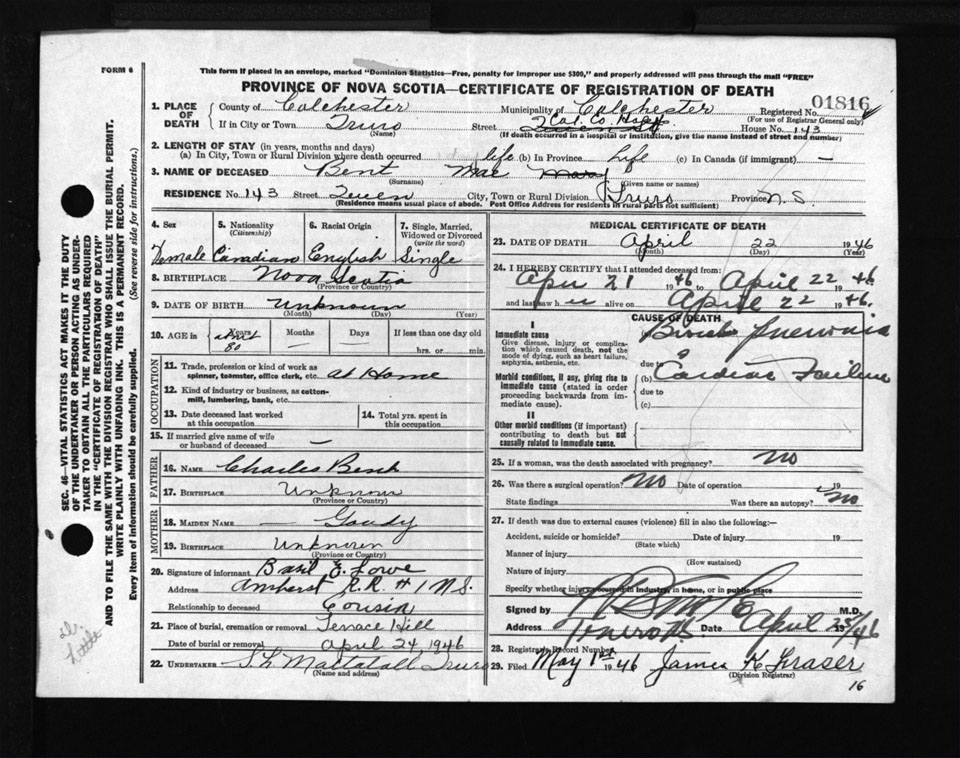 FORM 6
This form if placed in an envelope, marked "Dominion Statistics—Free, penalty for improper use $300," and properly addressed will pass through the mail "FREE"
PROVINCE OF NOVA SCOTIA—CERTIFICATE OF REGISTRATION OF DEATH
1. PLACE OF DEATH
County of Colchester Municipality of Colchester Registered No. 01816
(For use of Registrar General only)
If in City or Town Truro Street Queen St Col. Co. Hosp House No. 143
(Name) (If death occurred in a hospital or institution, give the name instead of street and number)
2. LENGTH OF STAY (in years, months and days)
(a) In City, Town or Rural Division where death occurred life (b) In Province Life (c) In Canada (if immigrant) —
3. NAME OF DECEASED Bent Mae Mary
(Surname) (Given name or names)
RESIDENCE No. 143 Street Queen City, Town or Rural Division Truro Province N.S.
(Residence means usual place of abode. Post Office Address for residents in rural parts not sufficient)
4. Sex 5. Nationality (Citizenship) 6. Racial Origin 7. Single, Married, Widowed or Divorced (write the word)
Female Canadian English Single
8. BIRTHPLACE Nova Scotia
(Province or Country)
9. DATE OF BIRTH Unknown
(Month) (Day) (Year)
10. AGE in Years Months Days If less than one day old
about 80 hrs. or min.
OCCUPATION
11. Trade, profession or kind of work as spinner, teamster, office clerk, etc. at Home
12. Kind of industry or business, as cotton-mill, lumbering, bank, etc.
13. Date deceased last worked at this occupation
14. Total yrs. spent in this occupation
15. If married give name of wife or husband of deceased —
FATHER
16. NAME Charles Bent
17. BIRTHPLACE Unknown
(Province or Country)
MOTHER
18. MAIDEN NAME — Goudy
19. BIRTHPLACE Unknown
(Province or Country)
20. Signature of informant Basil E. Lowe
Address Amherst R.R. # 1 N.S.
Relationship to deceased Cousin
21. Place of burial, cremation or removal Terrace Hill
Date of burial or removal April 24, 1946
22. UNDERTAKER S.L. Mattatall Truro
(Name and address)
MEDICAL CERTIFICATE OF DEATH
23. DATE OF DEATH April 22 1946
(Month) (Day) (Year)
24. I HEREBY CERTIFY that I attended deceased from:
Apr 21 1946 to April 22 1946
and last saw h er alive on April 22 1946.
CAUSE OF DEATH
I
Immediate cause
Give disease, injury or complication which caused death, not the mode of dying, such as heart failure, asphyxia, asthenia, etc.
(a) Broncho Pneumonia
due to
Morbid conditions, if any, giving rise to immediate cause (stated in order proceeding backwards from immediate cause).
(b) Cardiac Failure
due to
(c)
II
Other morbid conditions (if important) contributing to death but not causally related to immediate cause.
25. If a woman, was the death associated with pregnancy? No
26. Was there a surgical operation? No Date of operation 19
State findings Was there an autopsy? No
27. If death was due to external causes (violence) fill in also the following:—
Accident, suicide or homicide? Date of injury 19
(State which)
Manner of injury
(How sustained)
Nature of injury
Specify whether injury occurred in industry, in home, or in public place
Signed by M.D.
Address Truro N.S. Date April 25/46
28. Registrar's Record Number
29. Filed May 1st 1946 James K Fraser
(Division Registrar)
16
SEC. 46—VITAL STATISTICS ACT MAKES IT THE DUTY
OF THE UNDERTAKER OR PERSON ACTING AS UNDER-
TAKER TO OBTAIN ALL THE PARTICULARS REQUIRED
IN THE "CERTIFICATE OF REGISTRATION OF DEATH"
AND TO FILE THE SAME WITH THE DIVISION REGISTRAR WHO SHALL ISSUE THE BURIAL PERMIT.
WRITE PLAINLY WITH UNFADING INK. THIS IS A PERMANENT RECORD.
Every item of information should be carefully supplied. (See reverse side for instructions.)